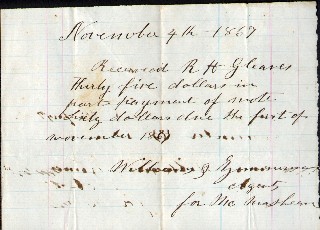 November 4th - 1867
Received R H Gleaves
thirty five dollars in
part payment of note
Sixty dollars due the first of
november 1867
William J
Agent
for Mc